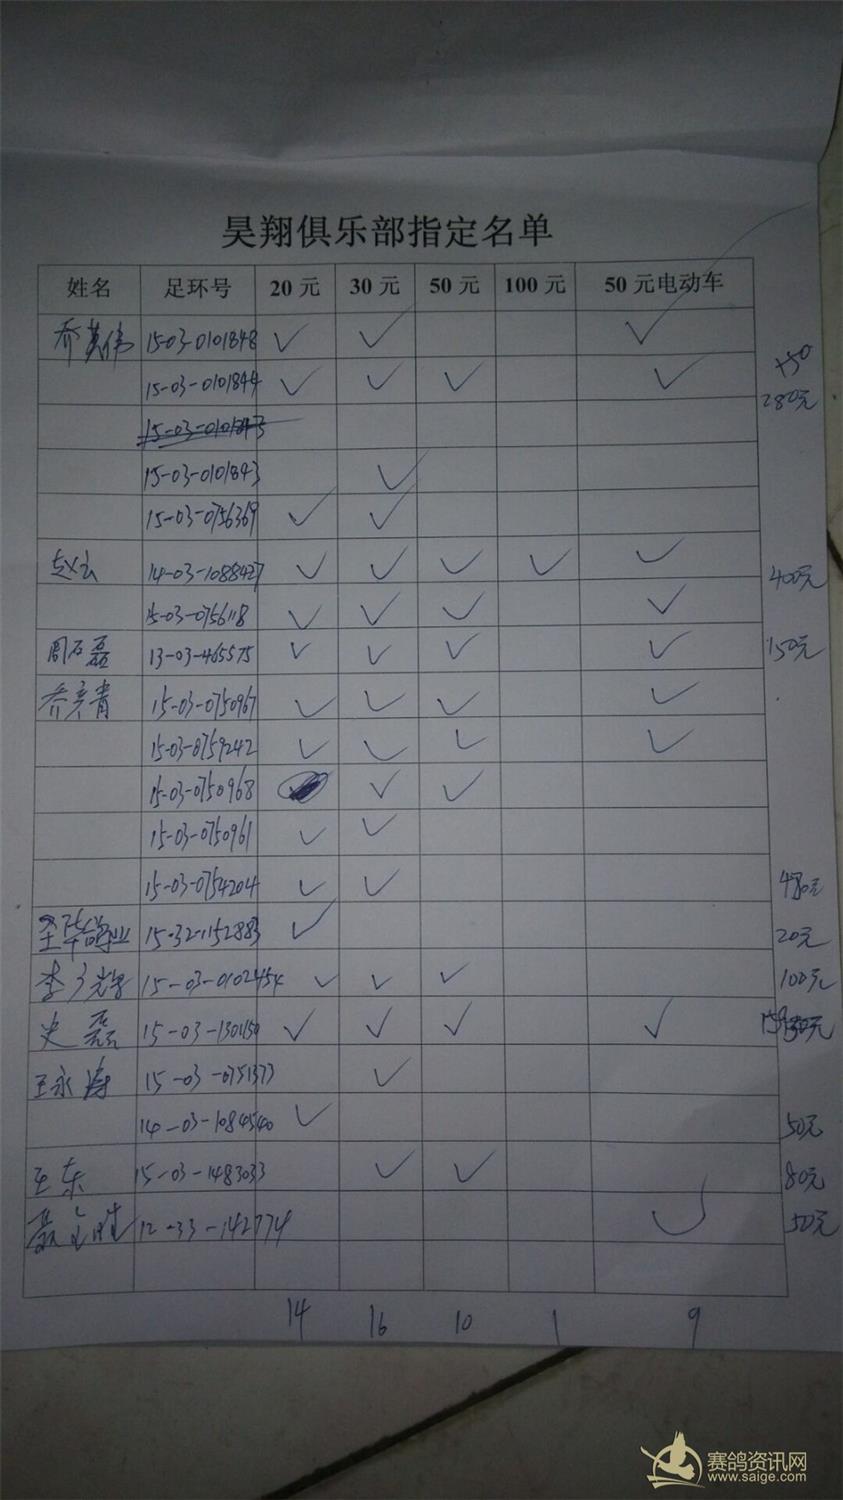 昊翔俱乐部指定名单
姓名 足环号 20元 30元 50元 100元 50元电动车
乔英伟 15-03-0101848 ✓ ✓ ✓
+50
15-03-0101844 ✓ ✓ ✓ ✓ 280元
15-03-0101843
15-03-0101843 ✓
15-03-0756369 ✓ ✓
赵云 14-03-1088427 ✓ ✓ ✓ ✓ ✓ 400元
15-03-0756118 ✓ ✓ ✓ ✓
周石磊 13-03-465575 ✓ ✓ ✓ ✓ 150元
乔彦青 15-03-0750967 ✓ ✓ ✓ ✓
15-03-0759242 ✓ ✓ ✓ ✓
15-03-0750968 ✓ ✓
15-03-0750961 ✓ ✓
15-03-0754204 ✓ ✓
15-32-1152883 ✓ 20元
李 15-03-0102454 ✓ ✓ ✓ 100元
史磊 15-03-1301150 ✓ ✓ ✓ ✓
王永涛 15-03-0751373 ✓
14-03-1084540 ✓ 50元
王东 15-03-1483033 ✓ ✓ 80元
12-33-142774 ✓ 50元
14 16 10 1 9
赛鸽资讯网
www.saige.com